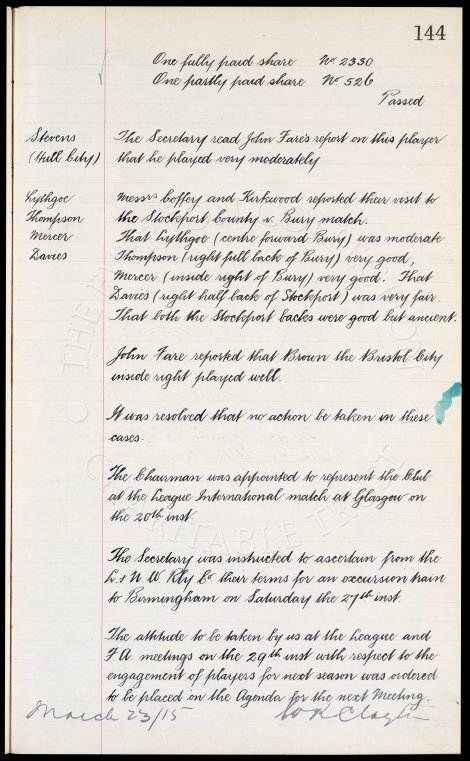 144
One fully paid share No 2330
One partly paid share No 526
Passed
Stevens The Secretary read John Fare's report on this player
(Hull City) that he played very moderately
Lythgoe Messrs Coffey and Kirkwood reported their visit to
Thompson the Stockport County v. Bury match.
Mercer That Lythgoe (centre forward Bury) was moderate
Davies Thompson (right full back of Bury) very good,
Mercer (inside right of Bury) very good. That
Davies (right half back of Stockport) was very fair.
That both the Stockport backs were good but ancient.
John Fare reported that Brown the Bristol City
inside right played well.
It was resolved that no action be taken in these
cases.
The Chairman was appointed to represent the Club
at the League International match at Glasgow on
the 20th inst.
The Secretary was instructed to ascertain from the
L. & N. W. Rly Co their terms for an excursion train
to Birmingham on Saturday the 27th inst.
The attitude to be taken by us at the League and
F.A. meetings on the 29th inst with respect to the
engagement of players for next season was ordered
to be placed on the Agenda for the next Meeting.
March 23/15